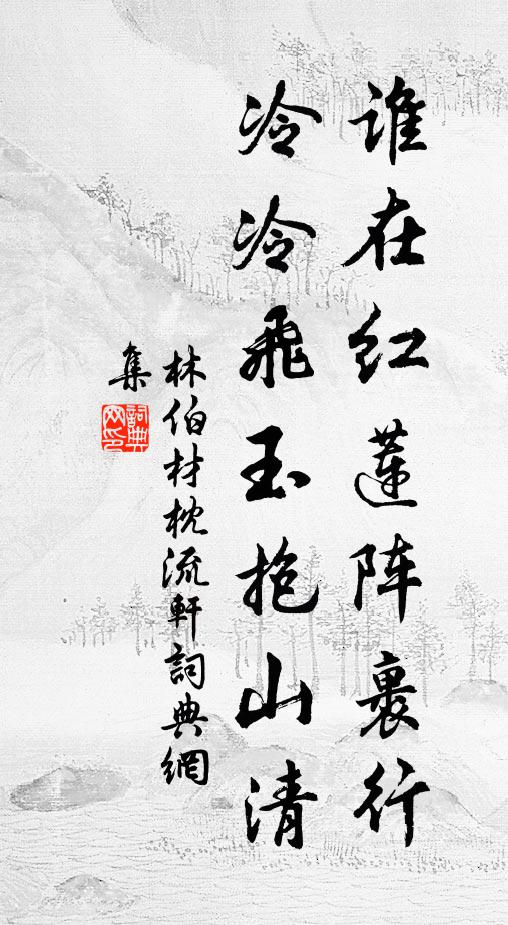 谁在红莲阵裹行
冷冷飞玉抱山清
林伯材枕流軒詞典網
集
詞典网印